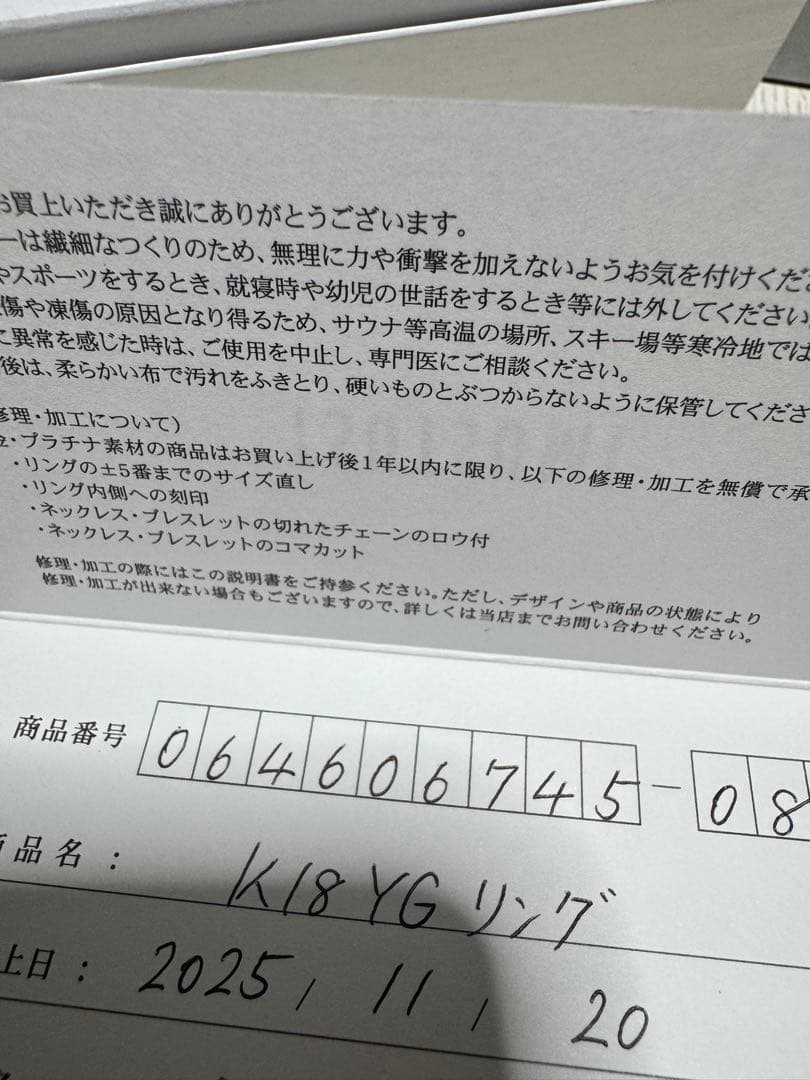 お買上いただき誠にありがとうございます。
ーは繊細なつくりのため、無理に力や衝撃を加えないようお気を付けくださ
やスポーツをするとき、就寝時や幼児の世話をするとき等には外してください。
傷や凍傷の原因となり得るため、サウナ等高温の場所、スキー場等寒冷地では
に異常を感じた時は、ご使用を中止し、専門医にご相談ください。
後は、柔らかい布で汚れをふきとり、硬いものとぶつからないように保管してくださ
修理・加工について)
・プラチナ素材の商品はお買い上げ後1年以内に限り、以下の修理・加工を無償で承
・リングの±5番までのサイズ直し
・リング内側への刻印
・ネックレス・ブレスレットの切れたチェーンのロウ付
・ネックレス・ブレスレットのコマカット
修理・加工の際にはこの説明書をご持参ください。ただし、デザインや商品の状態により
修理・加工が出来ない場合もございますので、詳しくは当店までお問い合わせください。
商品番号 064606745-08
品名: K18 YG リング
上日: 2025, 11, 20